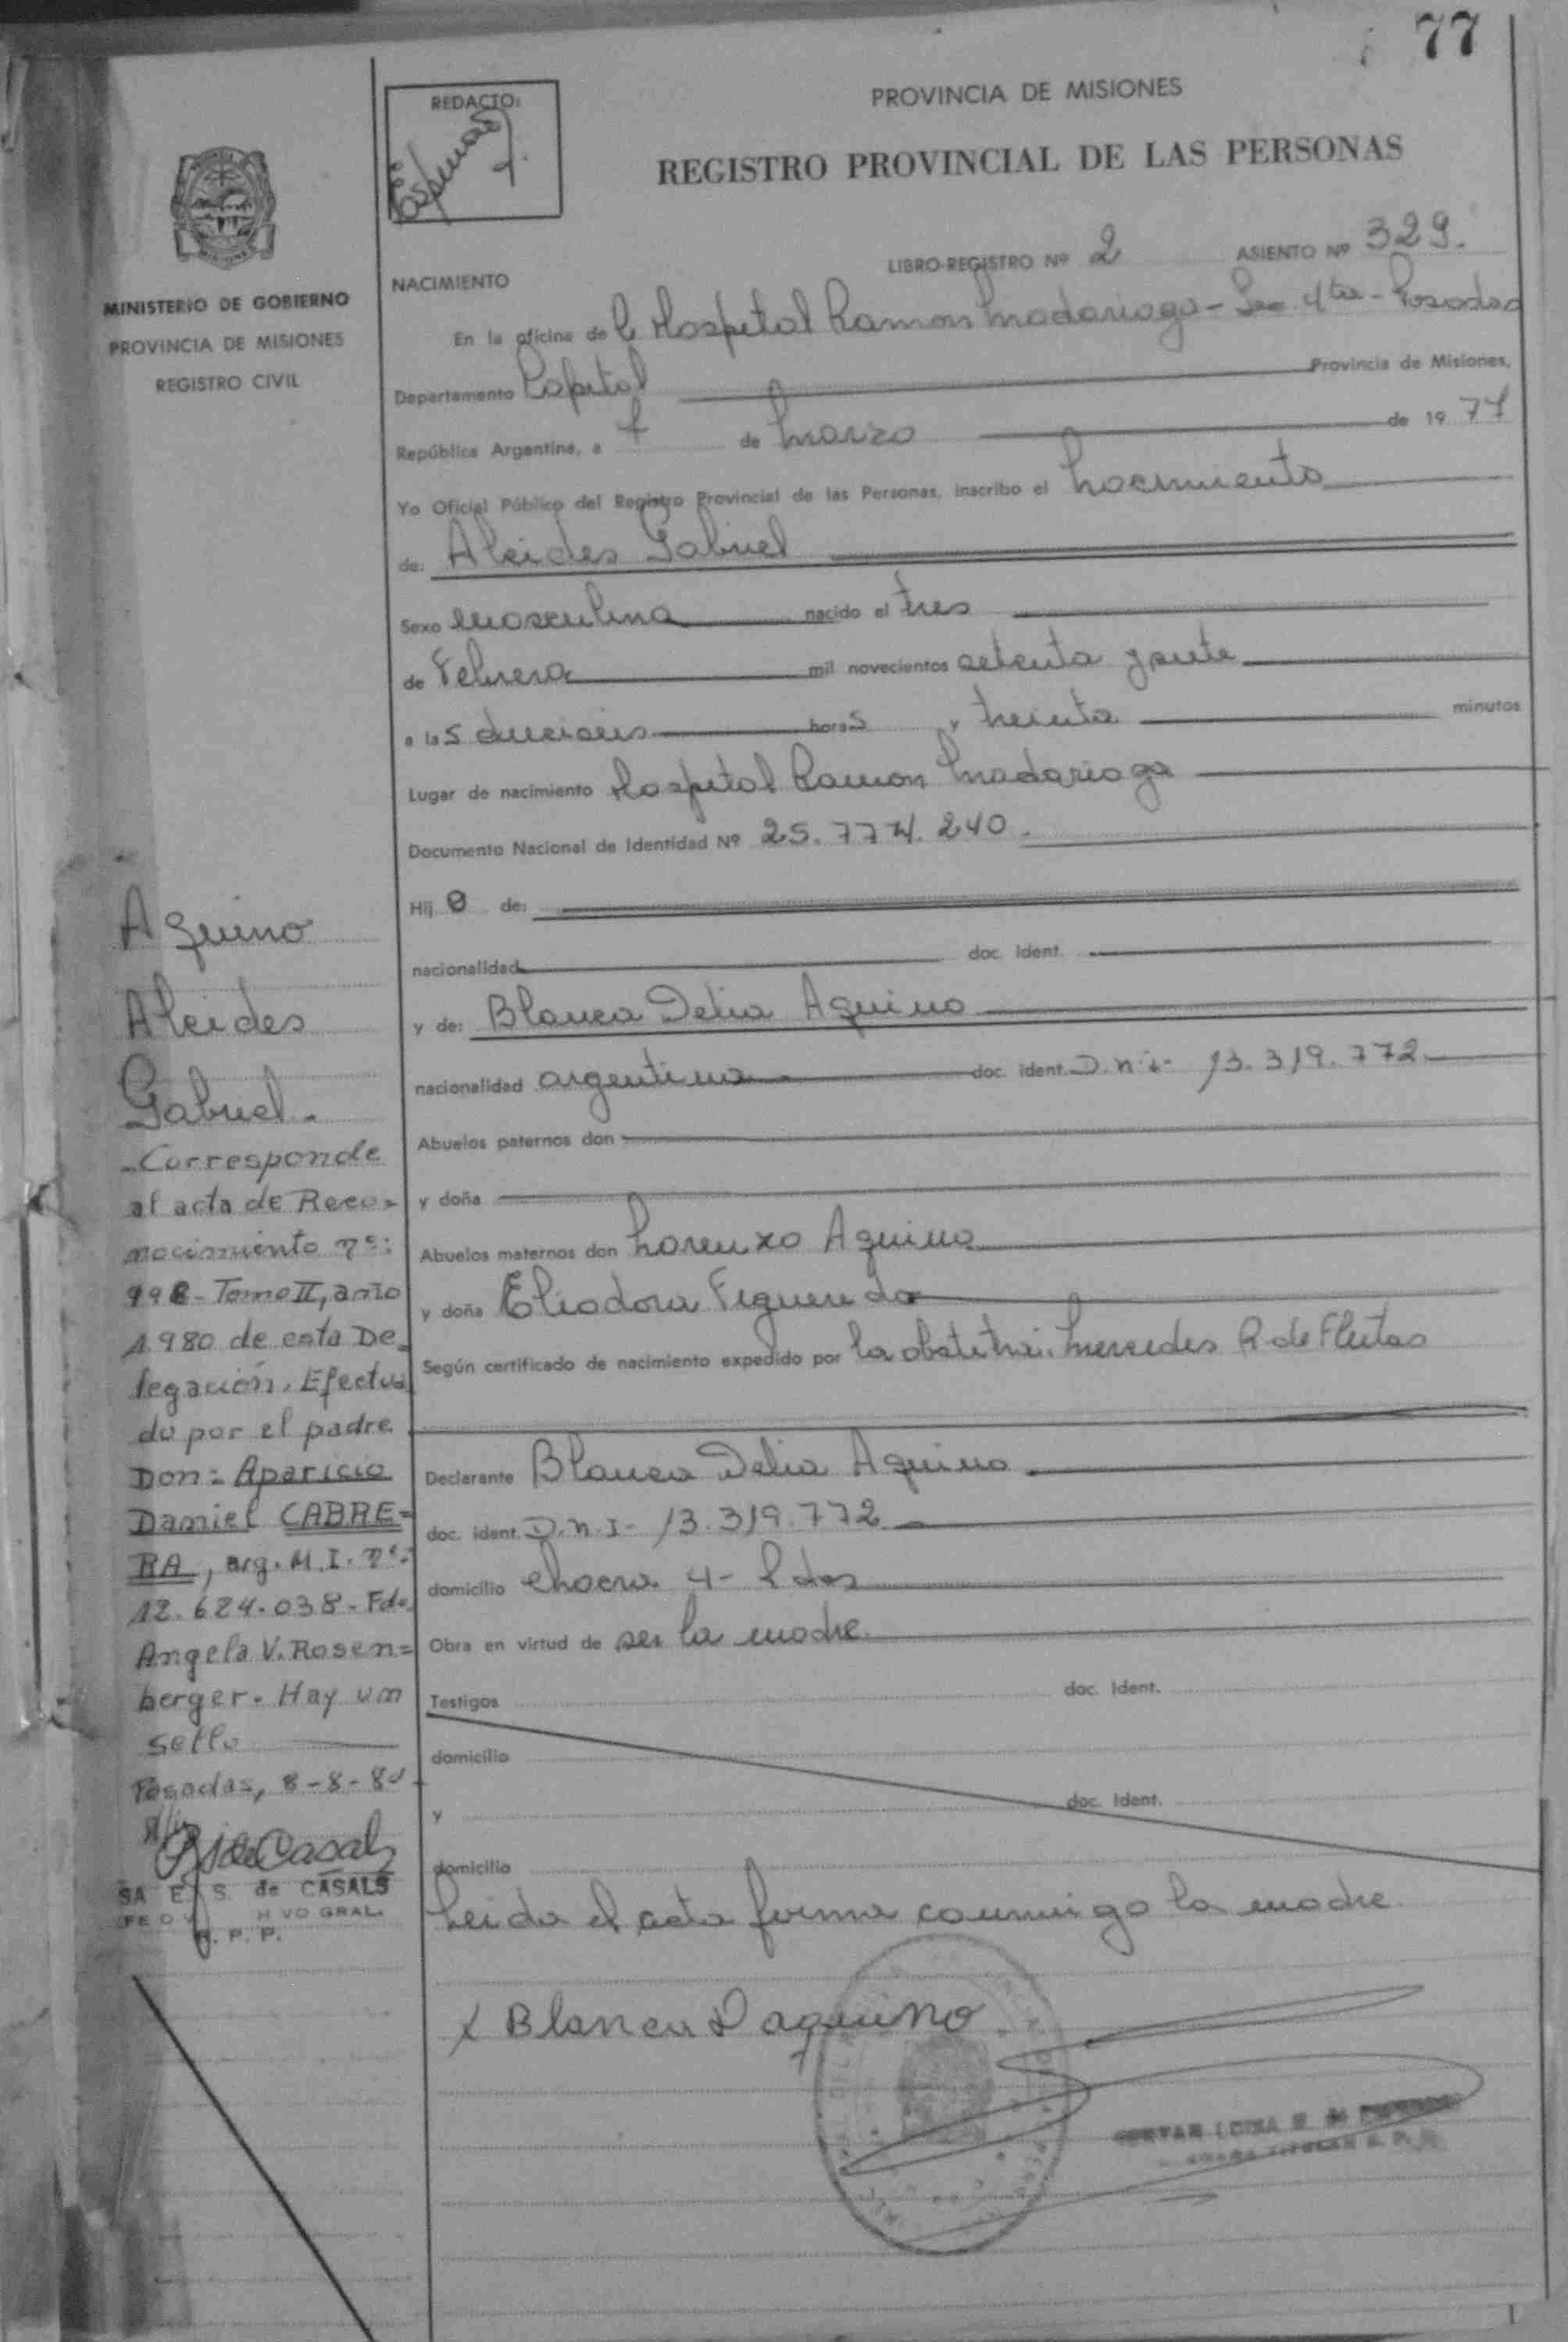 77
PROVINCIA DE MISIONES
REGISTRO PROVINCIAL DE LAS PERSONAS
REDACTO:
MINISTERIO DE GOBIERNO
PROVINCIA DE MISIONES
REGISTRO CIVIL
LIBRO-REGISTRO Nº 2 ASIENTO Nº 329.
NACIMIENTO
En la oficina de Hospital Ramon Madariaga - Sec 4ta - Posadas
Departamento Capital Provincia de Misiones,
República Argentina, a 7 de Marzo de 19 77
Yo Oficial Público del Registro Provincial de las Personas, inscribo el Nacimiento
de: Alcides Gabriel
Sexo Masculino nacido el tres
de Febrero mil novecientos setenta y siete
a las dieciseis horas y treinta minutos
Lugar de nacimiento Hospital Ramon Madariaga
Documento Nacional de Identidad Nº 25.774.240.
Hij o de:
nacionalidad doc. ident.
y de: Blanca Delia Aquino
nacionalidad argentina doc. ident. D.n.i- 13.319.772
Abuelos paternos don
y doña
Abuelos maternos don Lorenzo Aquino
y doña Eliodora Figueredo
Según certificado de nacimiento expedido por la obstetri. Mercedes R de Fleitas
Declarante Blanca Delia Aquino
doc. ident. D.n.I- 13.319.772
domicilio Chacra 4- Pdas
Obra en virtud de ser la madre.
Testigos doc. Ident.
domicilio
y doc. Ident.
domicilio
Leida el acta firma conmigo la madre.
X Blanca D aquino
Aquino
Alcides
Gabriel-
-Corresponde
al acta de Reco=
nocimiento nº:
998- Tomo II, año
1980 de esta De=
legación. Efectua
do por el padre
Don= Aparicio
Daniel CABRE=
RA, arg. M.I. nº:
12.624.038- Fdo.
Angela V. Rosen=
berger. Hay un
sello
Posadas, 8-8-80
S. de CASALS
GRAL.
R. P. P.